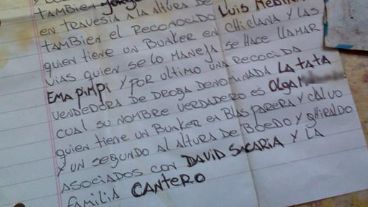 TAMBIEN
EN TRAVESIA A LA ALTURA DE LUIS MEDINA
TAMBIEN EL RECONOCIDO
QUIEN TIENE UN BUNKER EN CHICLANA Y LAS
VIAS QUIEN SE LO MANEJA SE HACE LLAMAR
EMA PIMPI Y POR ULTIMO UNA RECOCIDA
VENDEDORA DE DROGA DENOMINADA LA TATA
CUAL SU NOMBRE VERDADERO ES OLGA
QUIEN TIENE UN BUNKER EN BLAS PARERA Y CALVO
Y UN SEGUNDO AL ALTURA DE BOEDO Y GHIRALDO
ASOCIADOS CON DAVID SACARIA Y LA
FAMILIA CANTERO